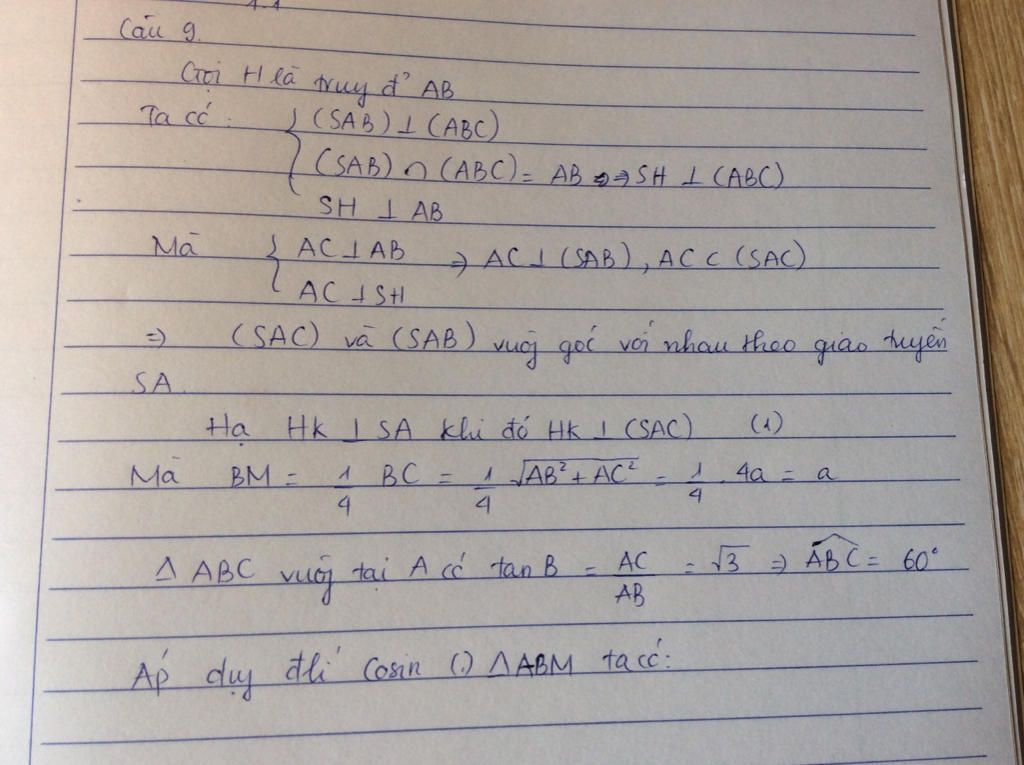 Câu 9.
Gọi H là truy đ' AB
Ta có : { (SAB) ⊥ (ABC)
(SAB) ∩ (ABC) = AB ⇒ SH ⊥ (ABC)
SH ⊥ AB
Mà { AC ⊥ AB ⇒ AC ⊥ (SAB) , AC ⊂ (SAC)
AC ⊥ SH
⇒ (SAC) và (SAB) vuôg góc với nhau theo giao tuyến
SA.
Hạ Hk ⊥ SA khi đó Hk ⊥ (SAC) (1)
Mà BM = 1/4 BC = 1/4 √(AB² + AC²) = 1/4 . 4a = a
Δ ABC vuôg tại A có tan B = AC/AB = √3 ⇒ ABC = 60°
Áp dụg đlí Cosin (.) Δ ABM ta có: